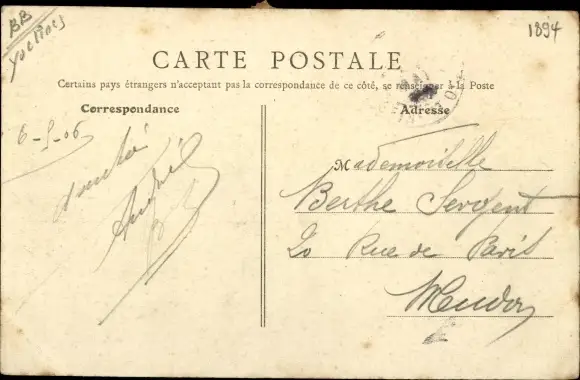 BB
1894
CARTE POSTALE
Certains pays étrangers n'acceptant pas la correspondance de ce côté, se renseigner à la Poste
Correspondance
Adresse
6-5-06
amitié
Mademoiselle
Berthe Sergent
20 Rue de Paris
Meudon